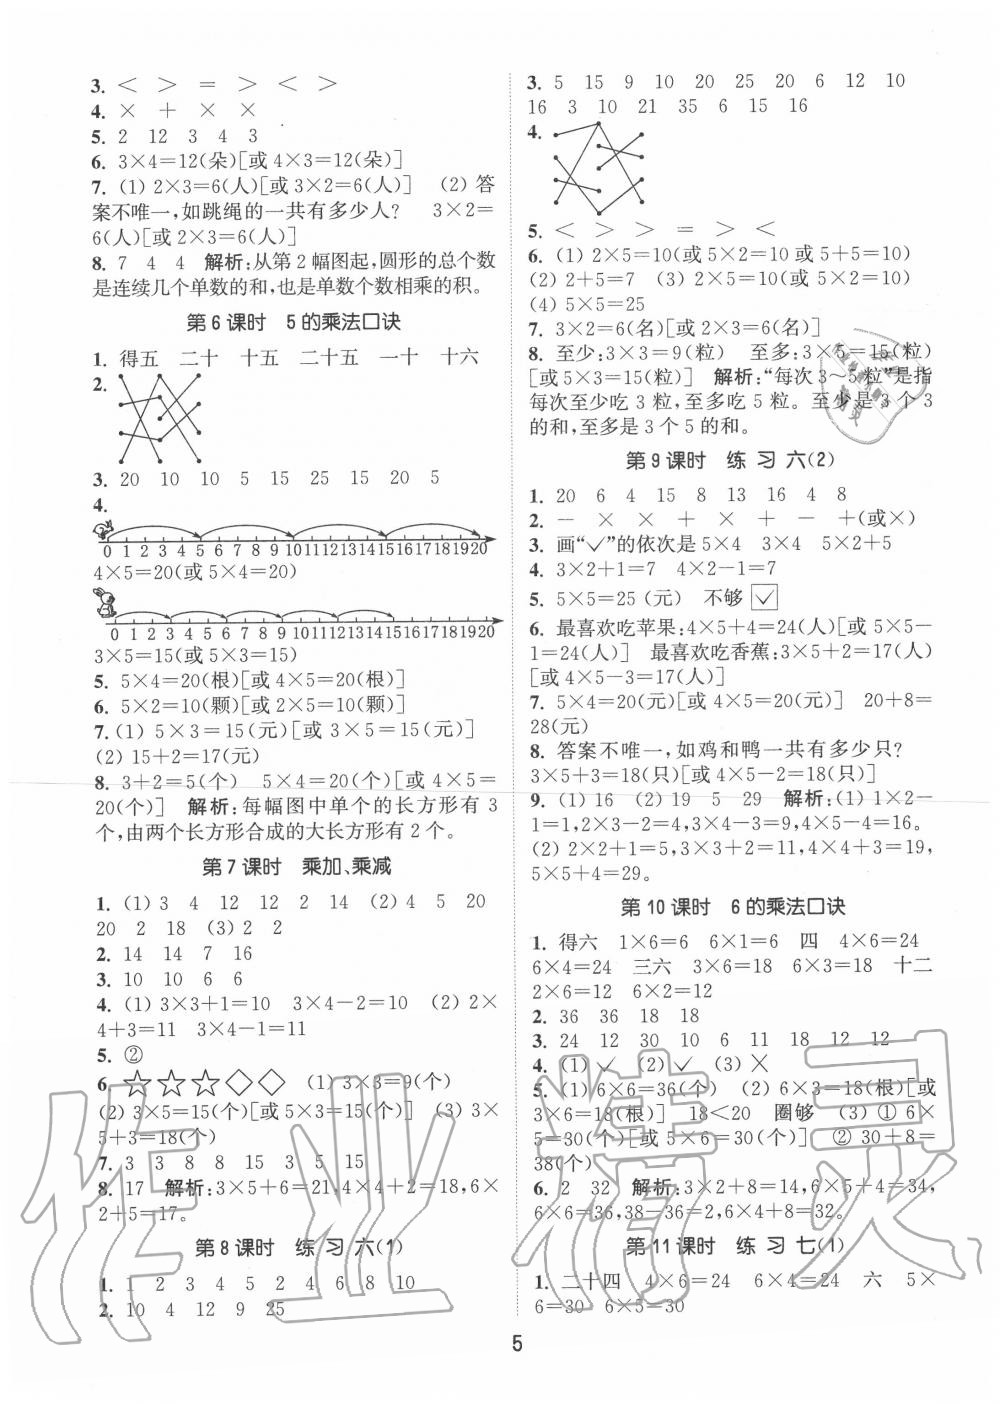 3. < > = > < >
4. × + × ×
5. 2 12 3 4 3
6. 3×4=12(朵)[或 4×3=12(朵)]
7. (1) 2×3=6(人)[或 3×2=6(人)] (2) 答
案不唯一,如跳绳的一共有多少人? 3×2=
6(人)[或 2×3=6(人)]
8. 7 4 4 解析:从第 2 幅图起,圆形的总个数
是连续几个单数的和,也是单数个数相乘的积。
第 6 课时 5 的乘法口诀
1. 得五 二十 十五 二十五 一十 十六
2.
3. 20 10 10 5 15 25 15 20 5
4.
0 1 2 3 4 5 6 7 8 9 1011121314151617181920
4×5=20(或 5×4=20)
0 1 2 3 4 5 6 7 8 9 1011121314151617181920
3×5=15(或 5×3=15)
5. 5×4=20(根)[或 4×5=20(根)]
6. 5×2=10(颗)[或 2×5=10(颗)]
7. (1) 5×3=15(元)[或 3×5=15(元)]
(2) 15+2=17(元)
8. 3+2=5(个) 5×4=20(个)[或 4×5=
20(个)] 解析:每幅图中单个的长方形有 3
个,由两个长方形合成的大长方形有 2 个。
第 7 课时 乘加、乘减
1. (1) 3 4 12 12 2 14 (2) 4 5 20
20 2 18 (3) 2 2
2. 14 14 7 16
3. 10 10 6 6
4. (1) 3×3+1=10 3×4-2=10 (2) 2×
4+3=11 3×4-1=11
5. ②
6. ☆☆☆◇◇ (1) 3×3=9(个)
(2) 3×5=15(个)[或 5×3=15(个)] (3) 3×
5+3=18(个)
7. 3 3 8 8 15 3 5 15
8. 17 解析:3×5+6=21,4×4+2=18,6×
2+5=17。
第 8 课时 练 习 六(1)
1. 1 2 3 4 5 2 4 6 8 10
2. 10 4 12 9 25
3. 5 15 9 10 20 25 20 6 12 10
16 3 10 21 35 6 15 16
4.
5. < > > > = > <
6. (1) 2×5=10(或 5×2=10 或 5+5=10)
(2) 2+5=7 (3) 2×5=10(或 5×2=10)
(4) 5×5=25
7. 3×2=6(名)[或 2×3=6(名)]
8. 至少:3×3=9(粒) 至多:3×5=15(粒)
[或 5×3=15(粒)] 解析:“每次 3~5 粒”是指
每次至少吃 3 粒,至多吃 5 粒。至少是 3 个 3
的和,至多是 3 个 5 的和。
第 9 课时 练 习 六(2)
1. 20 6 4 15 8 13 16 4 8
2. - × × + × + - +(或×)
3. 画“✓”的依次是 5×4 3×4 5×2+5
4. 3×2+1=7 4×2-1=7
5. 5×5=25 (元) 不够 ✓
6. 最喜欢吃苹果:4×5+4=24(人)[或 5×5-
1=24(人)] 最喜欢吃香蕉:3×5+2=17(人)
[或 4×5-3=17(人)]
7. 5×4=20(元)[或 4×5=20(元)] 20+8=
28(元)
8. 答案不唯一,如鸡和鸭一共有多少只?
3×5+3=18(只)[或 4×5-2=18(只)]
9. (1) 16 (2) 19 5 29 解析:(1) 1×2-
1=1,2×3-2=4,3×4-3=9,4×5-4=16。
(2) 2×2+1=5,3×3+2=11,4×4+3=19,
5×5+4=29。
第 10 课时 6 的乘法口诀
1. 得六 1×6=6 6×1=6 四 4×6=24
6×4=24 三六 3×6=18 6×3=18 十二
2×6=12 6×2=12
2. 36 36 18 18
3. 24 12 30 10 6 11 18 12 12
4. (1) ✓ (2) ✓ (3) ×
5. (1) 6×6=36(个) (2) 6×3=18(根)[或
3×6=18(根)] 18<20 圈够 (3) ① 6×
5=30(个)[或 5×6=30(个)] ② 30+8=
38(个)
6. 2 32 解析:3×2+8=14,6×5+4=34,
6×6=36,38-36=2,6×4+8=32。
第 11 课时 练 习 七(1)
1. 二十四 4×6=24 6×4=24 六 5×
6=30 6×5=30
5
作业精灵